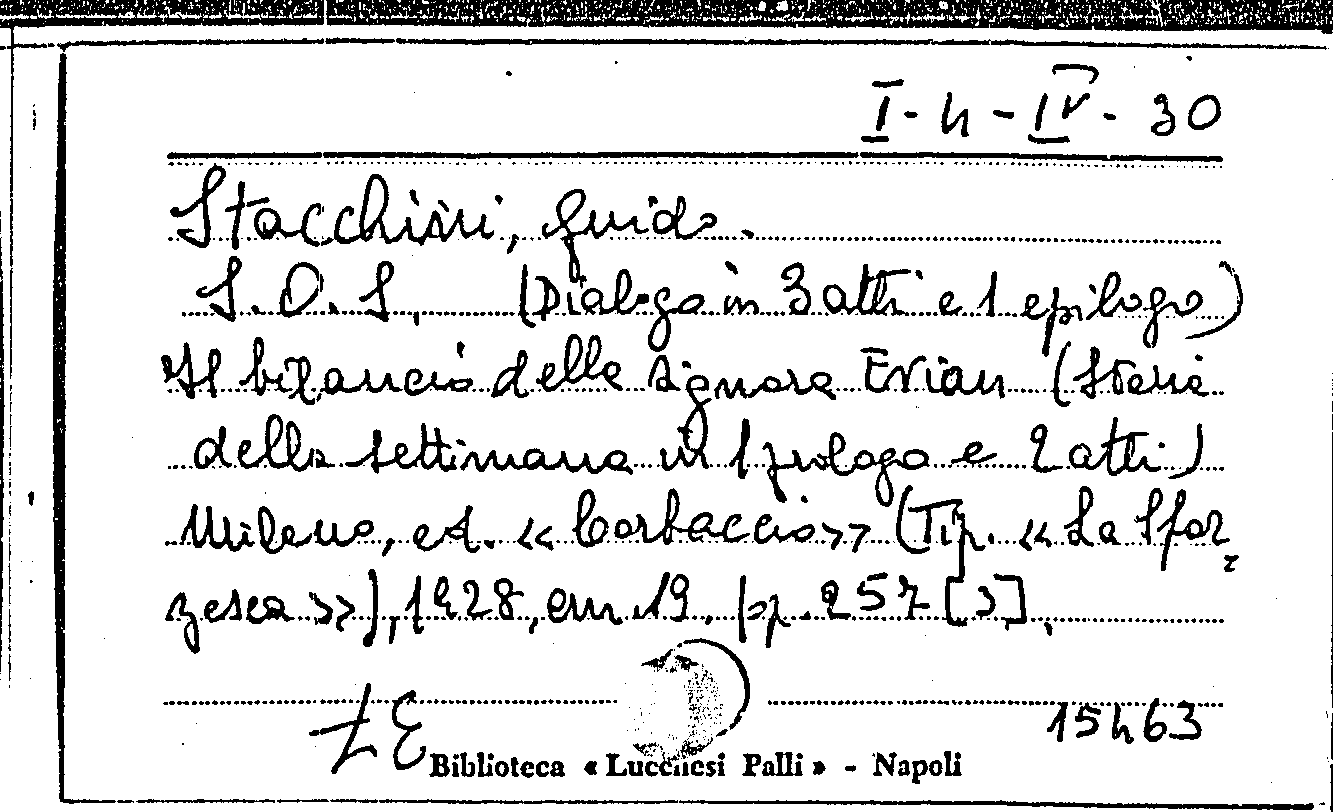 I-4-IV-30
Stacchini, Guido.
S.O.S. (Dialogo in 3 atti e 1 epilogo)
Il bilancio della signora Evian (Storia
della settimana in 1 prologo e 2 atti)
Milano, ed. «Corbaccio» (Tip. «La Sfor
zesca»), 1928, cm. 19, pp. 257 [3].
15463
Biblioteca « Lucchesi Palli » - Napoli